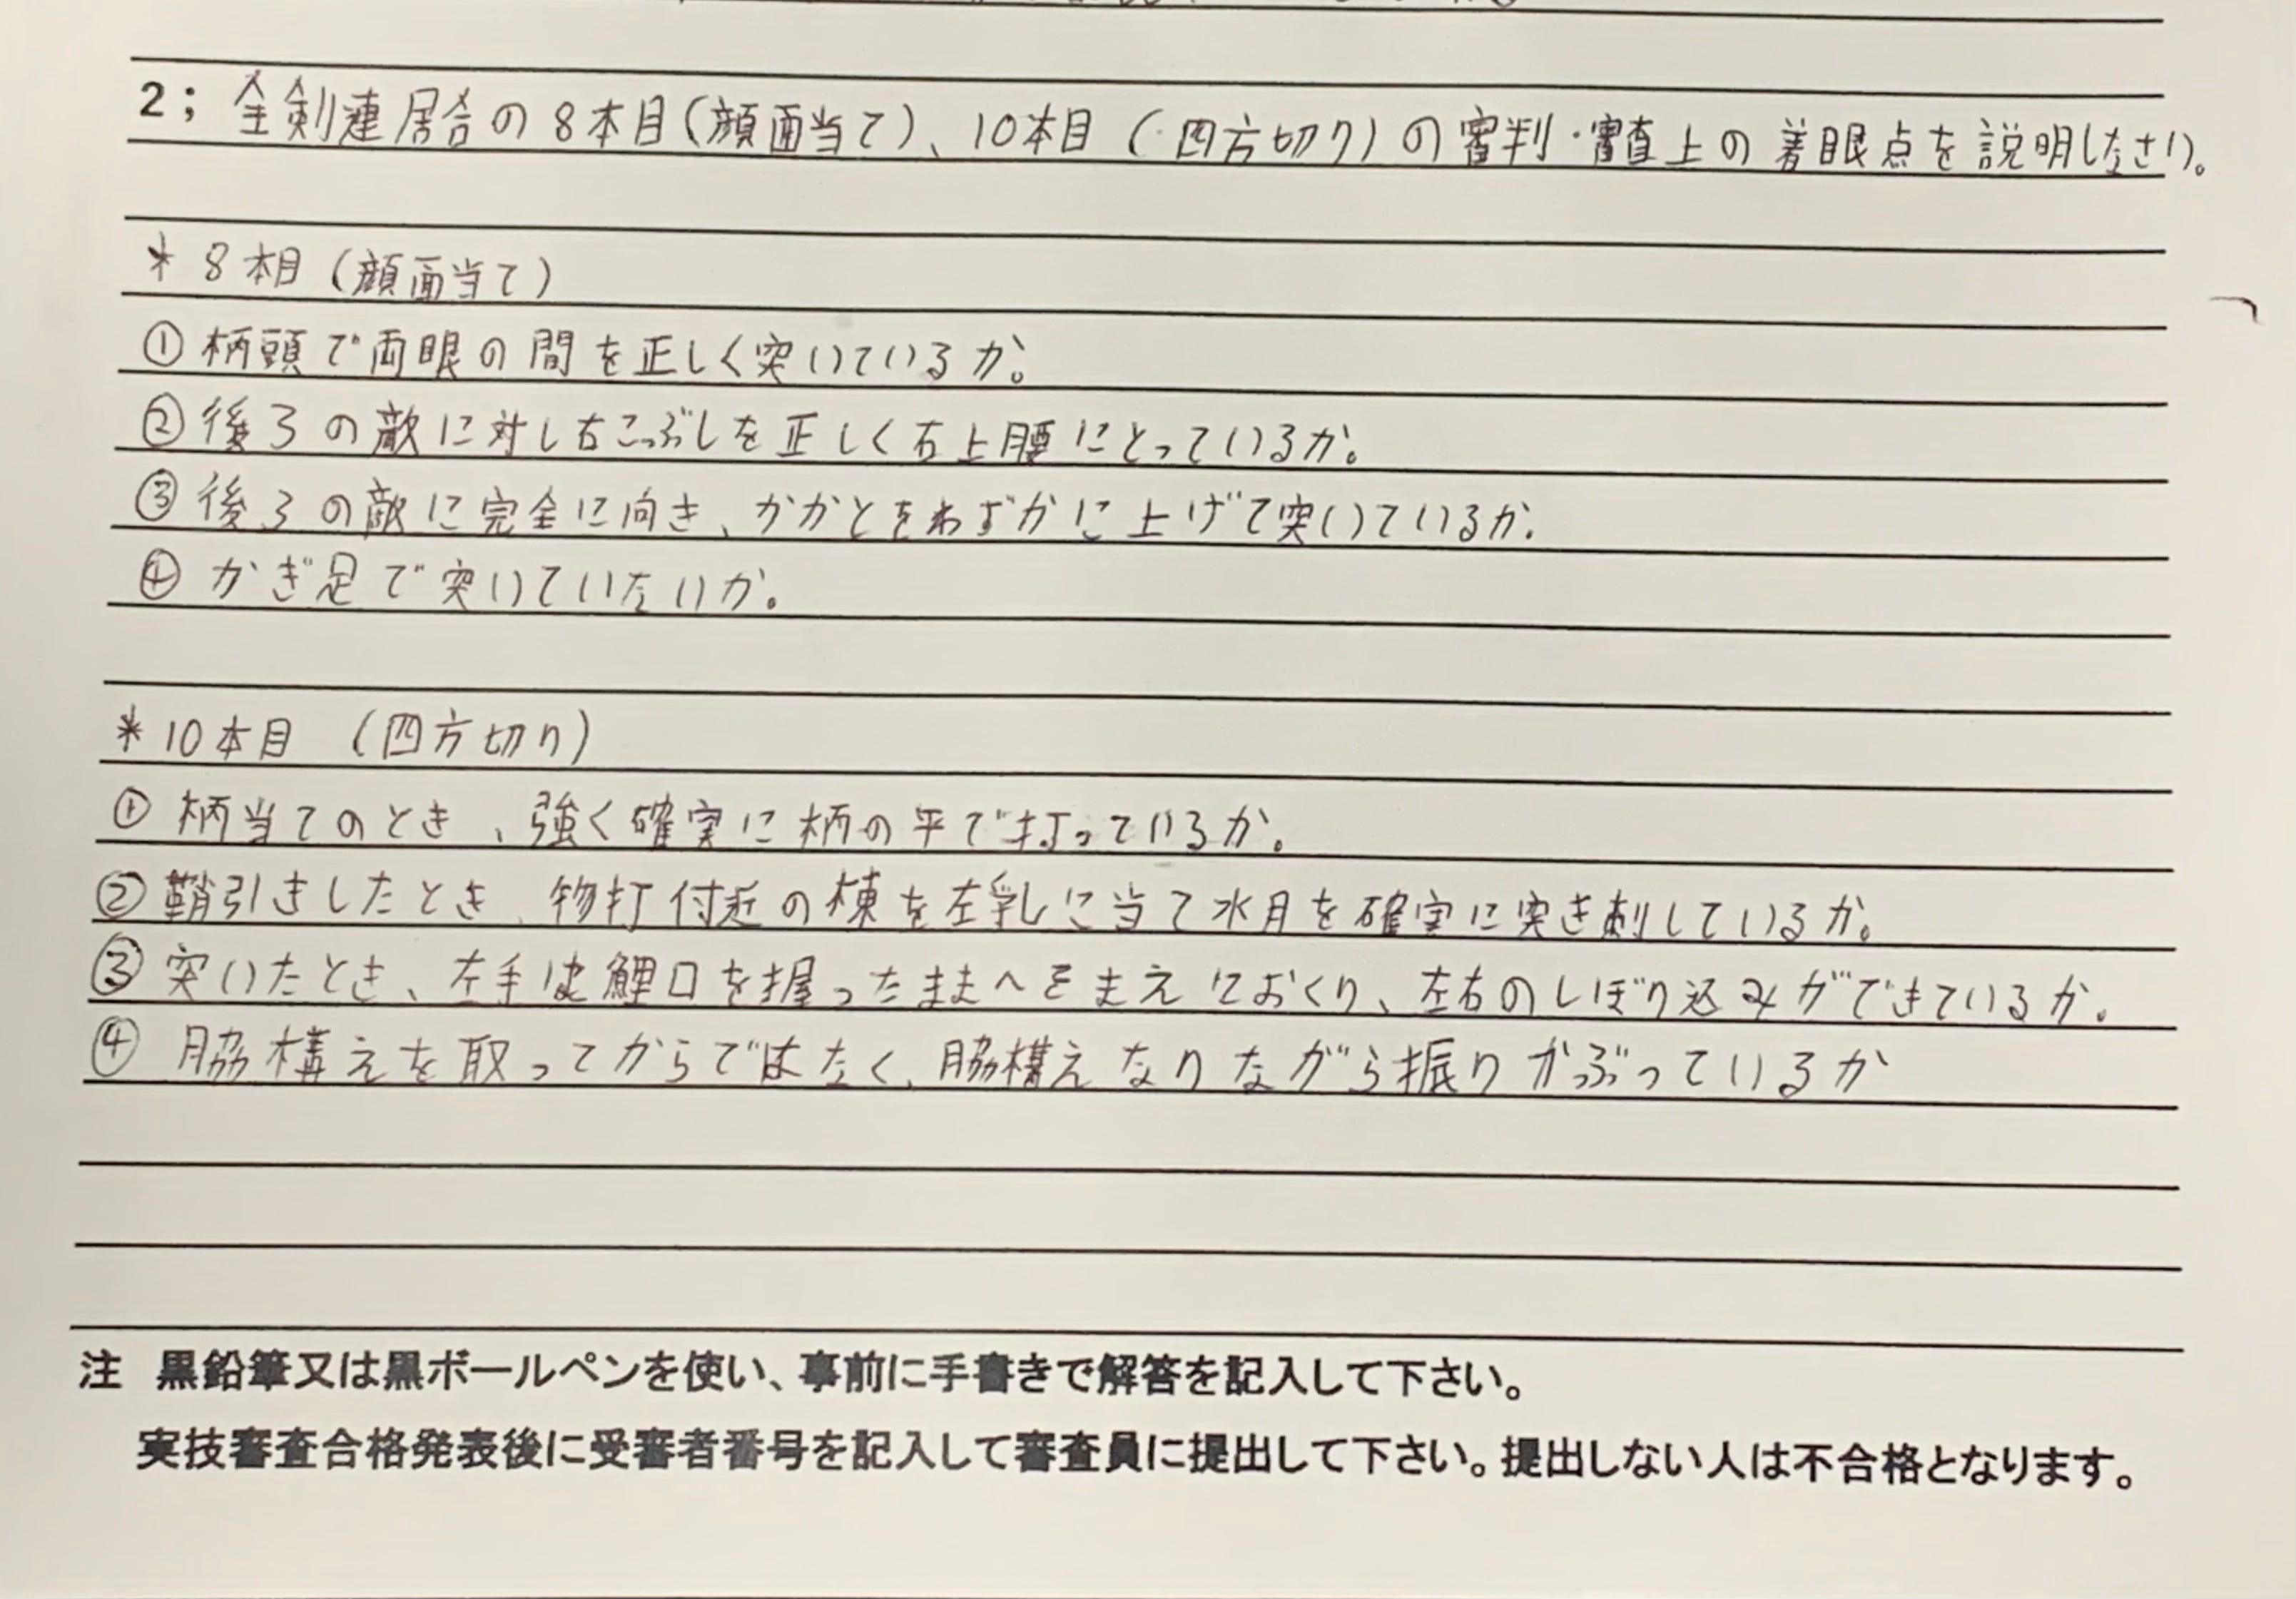 2； 全剣連居合の8本目(顔面当て)、10本目 (四方切り)の審判・審査上の着眼点を説明しなさい。
* 8本目 (顔面当て)
① 柄頭で両眼の間を正しく突いているか。
② 後ろの敵に対し右こぶしを正しく右上腰にとっているか。
③ 後ろの敵に完全に向き、かかとをわずかに上げて突いているか。
④ かぎ足で突いていないか。
* 10本目 (四方切り)
① 柄当てのとき、強く確実に柄の平で打っているか。
② 鞘引きしたとき、物打付近の棟を左乳に当て水月を確実に突き刺しているか。
③ 突いたとき、左手は鯉口を握ったままへそまえにおくり、左右のしぼり込みができているか。
④ 脇構えを取ってからではなく、脇構えなりながら振りかぶっているか
注 黒鉛筆又は黒ボールペンを使い、事前に手書きで解答を記入して下さい。
実技審査合格発表後に受審者番号を記入して審査員に提出して下さい。提出しない人は不合格となります。